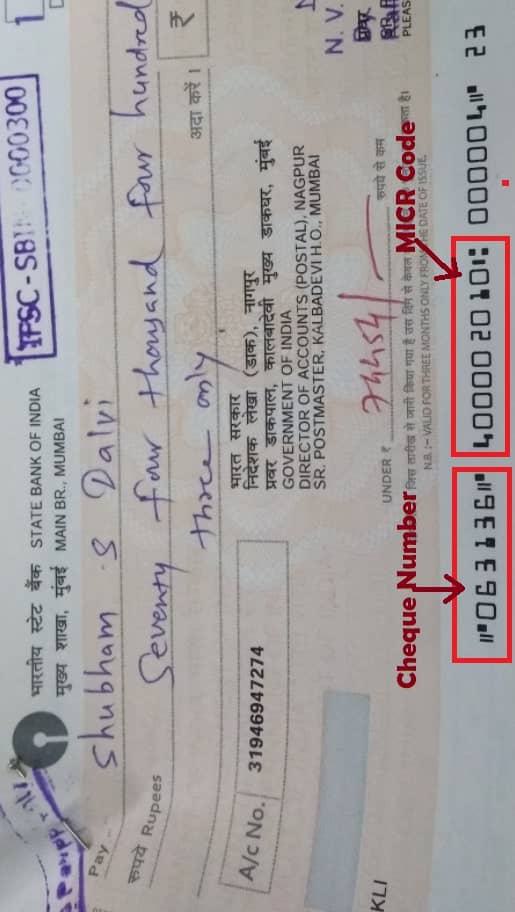 IFSC - SBIN 0000300
1
भारतीय स्टेट बैंक STATE BANK OF INDIA
मुख्य शाखा, मुंबई MAIN BR., MUMBAI
Pay Shubham S Dalvi
रुपये Rupees Seventy four thousand four hundred
three only
₹
अदा करें।
A/c No. 31946947274
भारत सरकार
निदेशक लेखा (डाक), नागपुर
प्रवर डाकपाल, कालबादेवी मुख्य डाकघर, मुंबई
GOVERNMENT OF INDIA
DIRECTOR OF ACCOUNTS (POSTAL), NAGPUR
SR. POSTMASTER, KALBADEVI H.O., MUMBAI
N. V.
PLEAS
UNDER ₹ रुपये से कम
KLI
जिस तारीख से जारी किया गया है उस दिन से केवल
N.B. :- VALID FOR THREE MONTHS ONLY FROM THE DATE OF ISSUE.
Cheque Number
MICR Code
⑈063136⑈ 400002010⑆ 000004⑈ 23